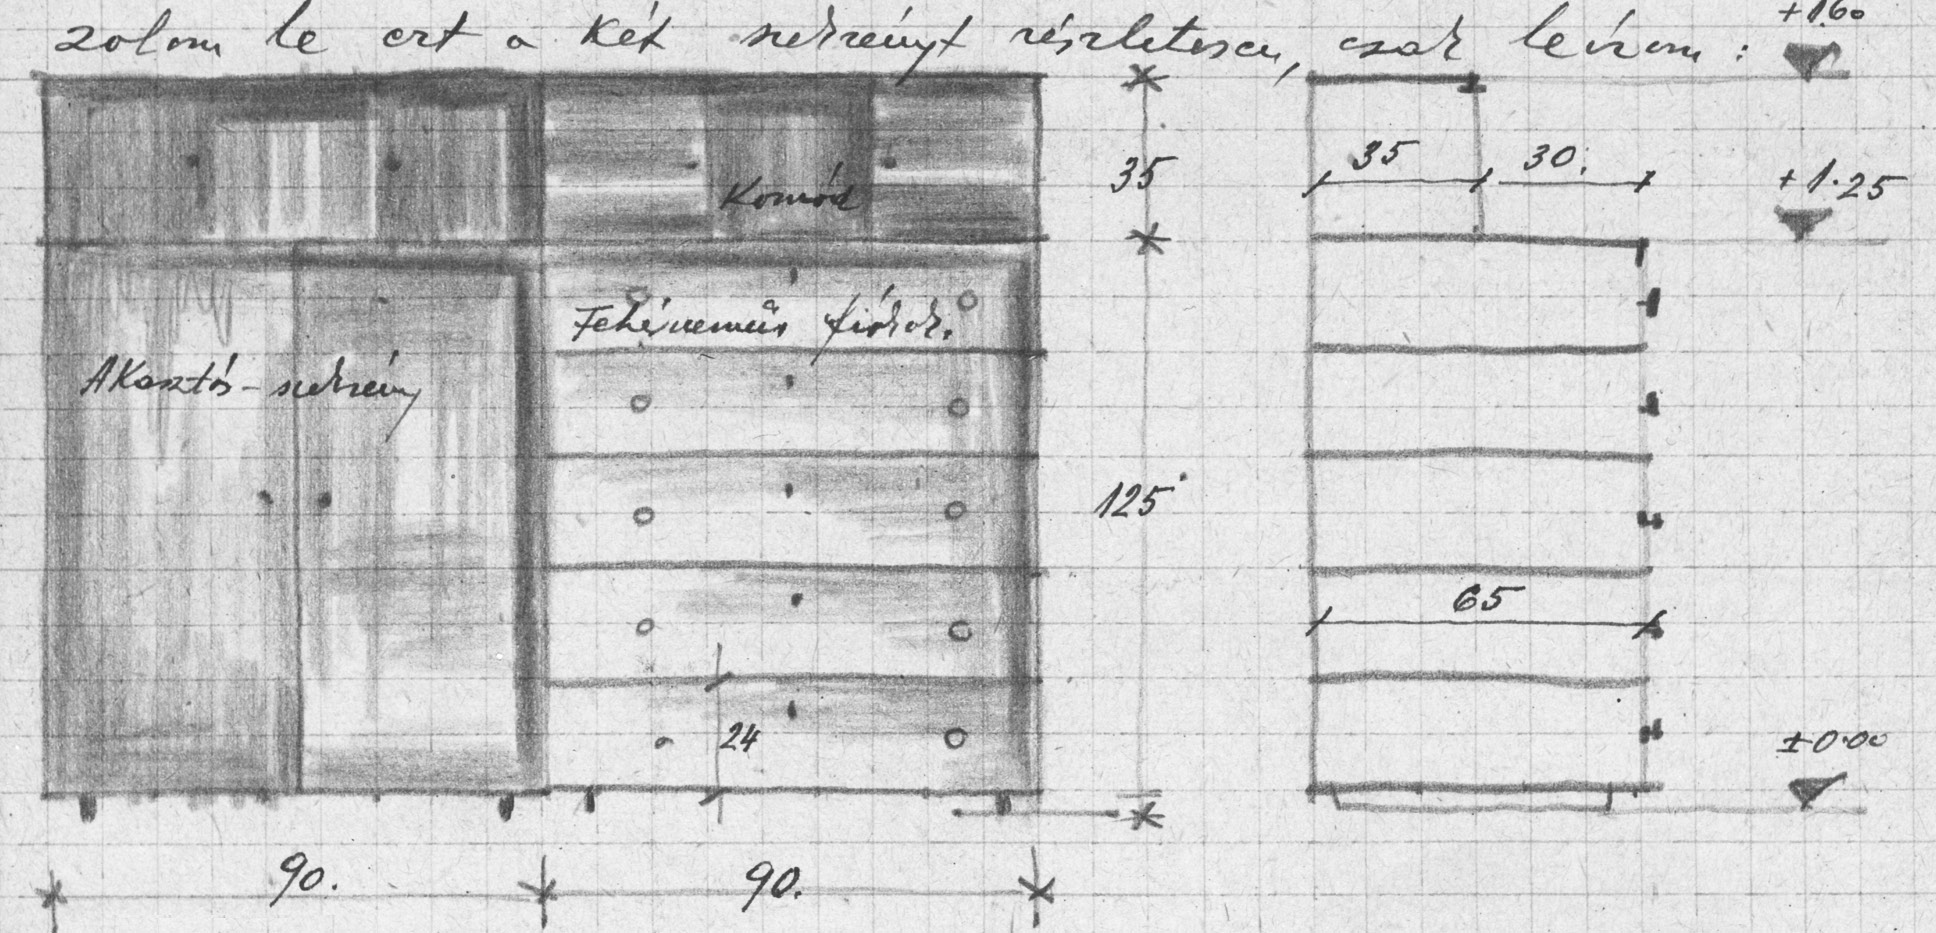 zolom le ezt a két szekrényt részletesen, csak leírom:
+1.60
35
35
30.
+1.25
Komód
Fehérneműs fiókok.
AKasztós-szekrény
125
65
24
±0.00
90.
90.